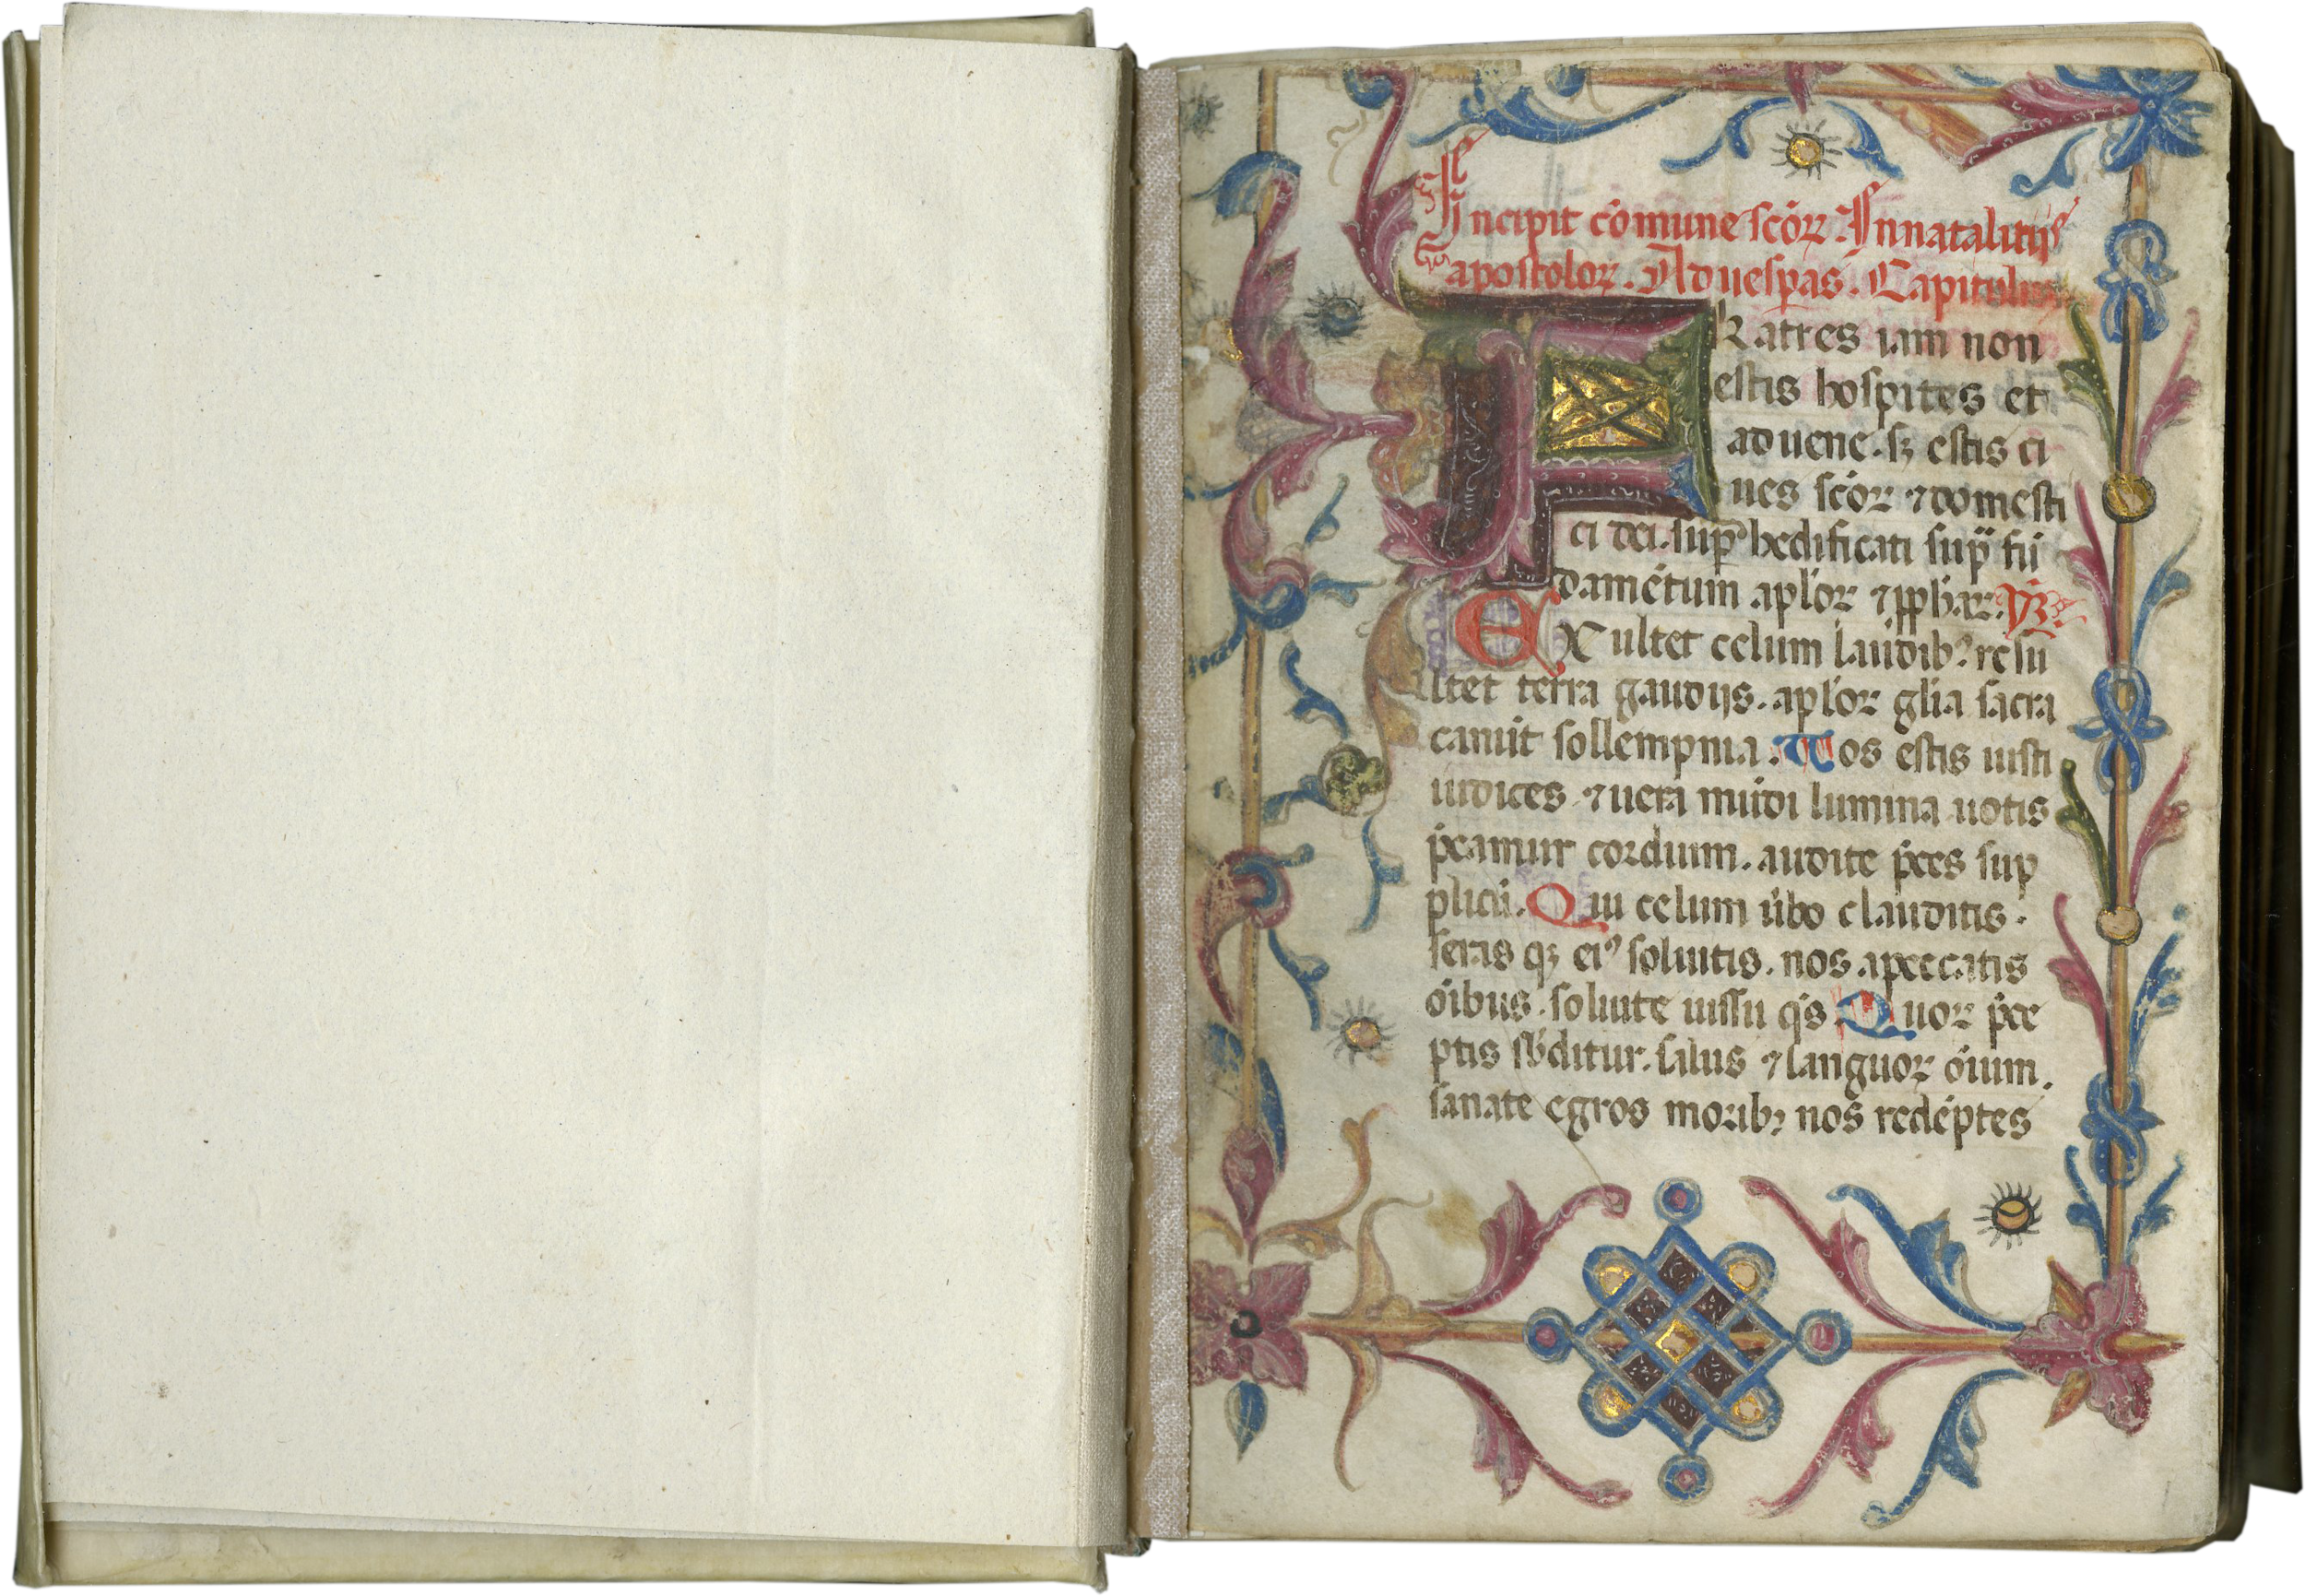 Incipit cōmune scōꝝ. In natalitijs
apostoloꝝ. Ad uesp̄as. Capitulu
FRatres iam non
estis hospites et
aduene. sꝫ estis ci
ues scōꝝ ⁊ domesti
ci dei. sup̄ hedificati sup̄ fū
damētum aplōꝝ ⁊ ꝓph̄aꝝ. ym̄.
EXultet celum laudibꝰ. resu
ltet terra gaudijs. aplōꝝ glīa sacra
canūt sollempnia. Uos estis iusti
iudices ⁊ uera mūdi lumina uotis
p̄camur cordium. audite p̄ces sup
plicū. Qui celum ūbo clauditis.
seras qꝫ eiꝰ soluitis. nos a peccatis
ōibus. soluite iussu qs̄ Quoꝝ p̄ce
ptis sb̄ditur. salus ⁊ languor ōium.
sanate egros moribꝫ nos reddētes